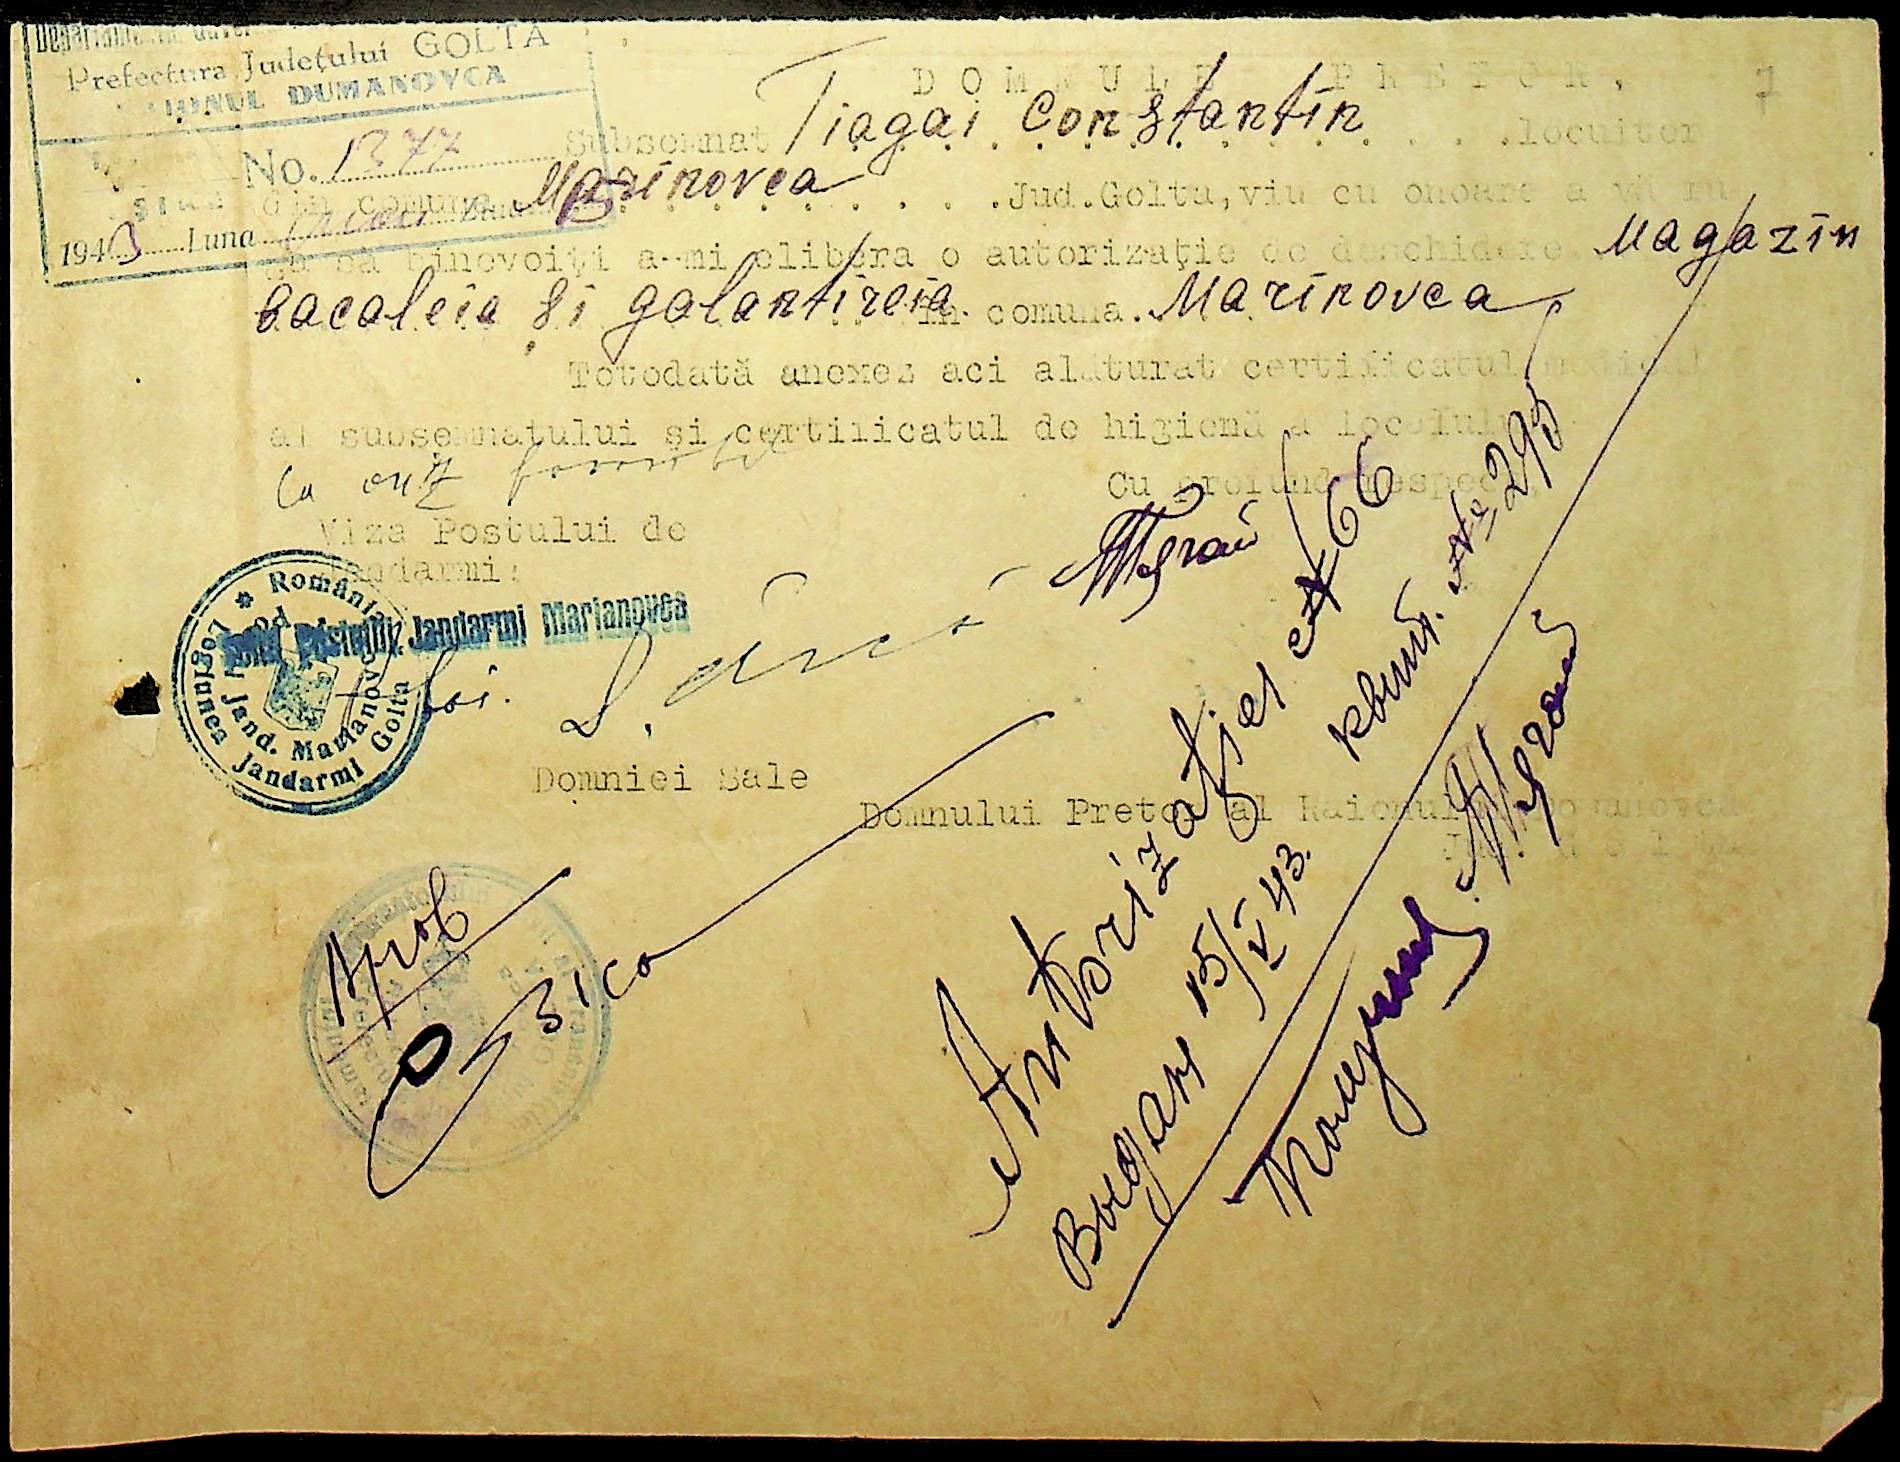 Prefectura Județului GOLTA
IONUL DUMANOVCA
No. 1377
1943 Luna
DOMNULE PRETOR,
Subsemnat Tiagai Constantin locuitor
din comuna Marinovca Jud.Golta, viu cu onoare a vă ru
ga să binevoiți a-mi elibera o autorizație de deschidere Magazin
bacaleia și galantireia în comuna Marinovca
Totodată anexez aci alăturat certificatul medical
al subsemnatului și certificatul de higienă a localului
Cu profund respect,
Viza Postului de
Jandarmi:
Postului Jandarmi Marianovca
România
Legiunea Jandarmi Golta
Jand. Marianovca
Domniei Sale
Domnului Pretor al Raionului Domanovca
Jud. Golta
Aprob
Autorizatjei № 66
Выдан 15/V 43. квит. № 295
Получил Тягай